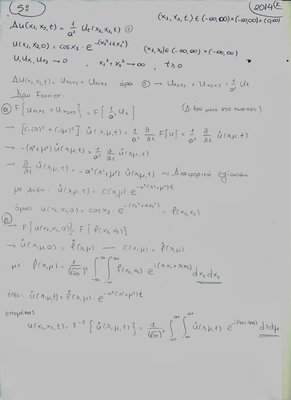 5)
2014(Ε
Δu(x₁,x₂,t) = 1/α² Uₜ(x₁,x₂,t) ①
(x₁,x₂,t) ∈ (-∞,∞)×(-∞,∞)×(0,∞)
u(x₁,x₂,0) = cosx₂·e^-(x₁²+4x₂²)
(x₁,x₂) ∈ (-∞,∞)×(-∞,∞)
x₁²+x₂²→∞, t>0
Δu(x₁,x₂,t) = Ux₁x₁ + Ux₂x₂ άρα ① → Ux₁x₁ + Ux₂x₂ = 1/α² Uₜ
Άρα Fourier:
F{Ux₁x₁ + Ux₂x₂} = F{1/α² Uₜ}
→ [(-iλ)² + (-iμ)²]·û(λ,μ,t) = 1/α² ∂/∂t F[u] = 1/α² ∂/∂t û(λ,μ,t)
→ -(λ²+μ²) û(λ,μ,t) = 1/α² ∂/∂t û(λ,μ,t)
→ ∂/∂t û(λ,μ,t) = -α²(λ²+μ²) û(λ,μ,t) ~ Διαφορική Εξίσωση
με λύση: û(λ,μ,t) = C(λ,μ) e^-α²(λ²+μ²)t
όμως u(x₁,x₂,0) = cosx₂·e^-(x₁²+4x₂²) = f(x₁,x₂)
→ F{u(x₁,x₂,0)} = F{f(x₁,x₂)}
→ û(λ,μ,0) = f̂(λ,μ) → C(λ,μ) = f̂(λ,μ)
με f̂(λ,μ) = 1/(√2π)² ∫_-∞^∞ ∫_-∞^∞ f(x₁,x₂)·e^i(λx₁+μx₂) dx₁ dx₂
έτσι: û(λ,μ,t) = f̂(λ,μ)·e^-α²(λ²+μ²)t
επομένως
u(x₁,x₂,t) = F⁻¹{û(λ,μ,t)} = 1/(√2π)² ∫_-∞^∞ ∫_-∞^∞ û(λ,μ,t)·e^-i(λx₁+μx₂) dλdμ